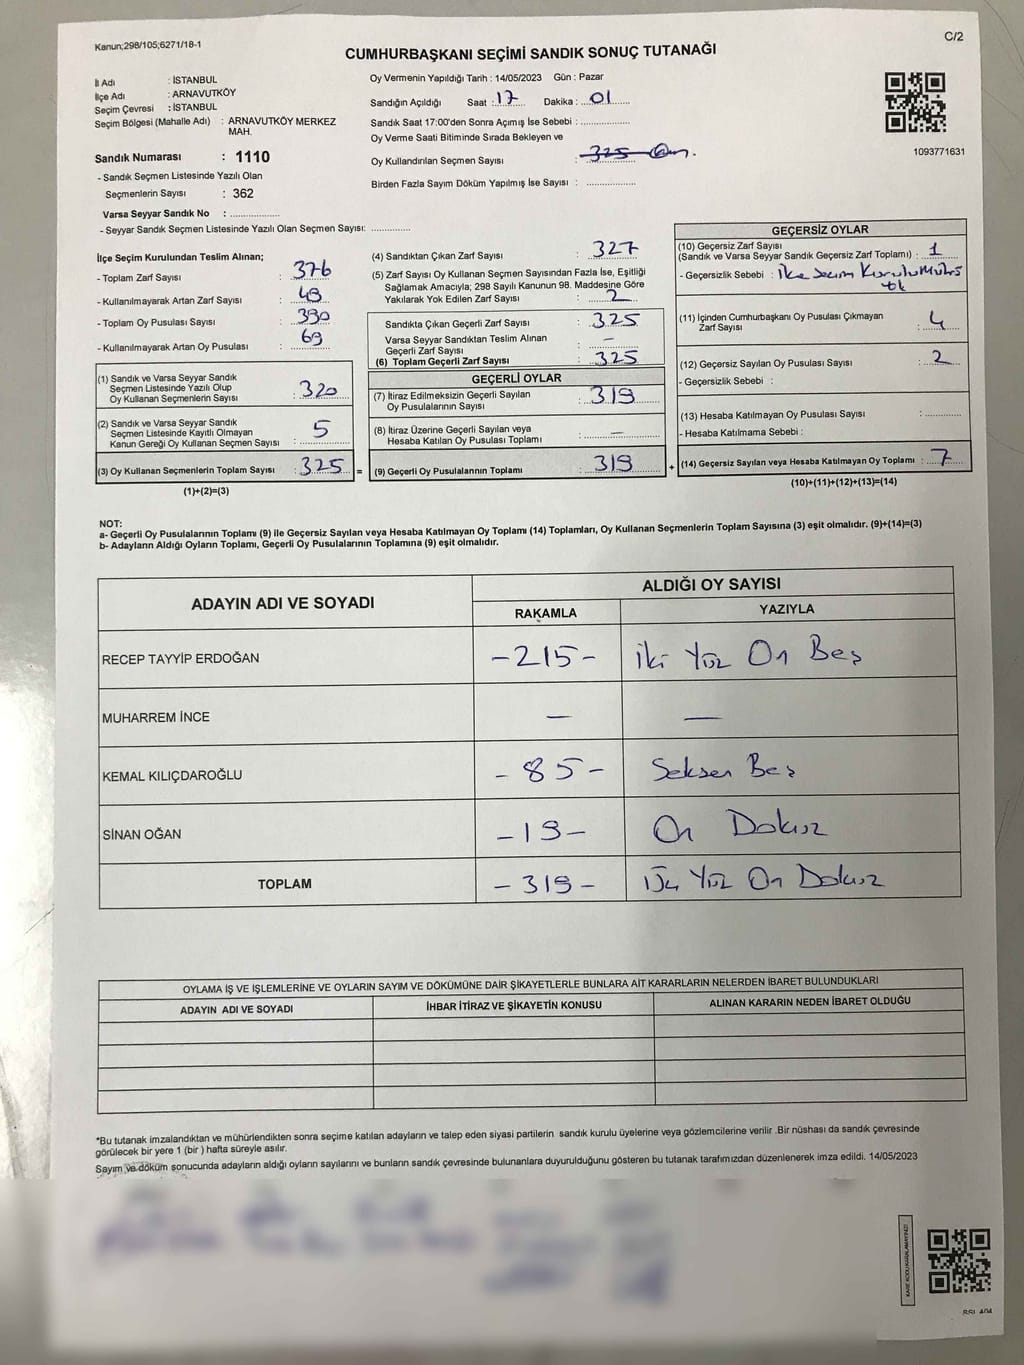 Kanun;298/105;6271/18-1
C/2
CUMHURBAŞKANI SEÇİMİ SANDIK SONUÇ TUTANAĞI
İl Adı : İSTANBUL
İlçe Adı : ARNAVUTKÖY
Seçim Çevresi : İSTANBUL
Seçim Bölgesi (Mahalle Adı) : ARNAVUTKÖY MERKEZ
MAH.
Sandık Numarası : 1110
- Sandık Seçmen Listesinde Yazılı Olan
Seçmenlerin Sayısı : 362
Varsa Seyyar Sandık No : ..................
- Seyyar Sandık Seçmen Listesinde Yazılı Olan Seçmen Sayısı: ..............
Oy Vermenin Yapıldığı Tarih : 14/05/2023 Gün : Pazar
Sandığın Açıldığı Saat : 17 Dakika : 01
Sandık Saat 17:00'den Sonra Açımış İse Sebebi : ..................
Oy Verme Saati Bitiminde Sırada Bekleyen ve
Oy Kullandırılan Seçmen Sayısı : 325
Birden Fazla Sayım Döküm Yapılmış İse Sayısı : ..................
1093771631
İlçe Seçim Kurulundan Teslim Alınan;
- Toplam Zarf Sayısı : 376
- Kullanılmayarak Artan Zarf Sayısı : 49
- Toplam Oy Pusulası Sayısı : 390
- Kullanılmayarak Artan Oy Pusulası : 69
(1) Sandık ve Varsa Seyyar Sandık
Seçmen Listesinde Yazılı Olup
Oy Kullanan Seçmenlerin Sayısı : 320
(2) Sandık ve Varsa Seyyar Sandık
Seçmen Listesinde Kayıtlı Olmayan
Kanun Gereği Oy Kullanan Seçmen Sayısı : 5
(3) Oy Kullanan Seçmenlerin Toplam Sayısı : 325 =
(1)+(2)=(3)
(4) Sandıktan Çıkan Zarf Sayısı : 327
(5) Zarf Sayısı Oy Kullanan Seçmen Sayısından Fazla İse, Eşitliği
Sağlamak Amacıyla; 298 Sayılı Kanunun 98. Maddesine Göre
Yakılarak Yok Edilen Zarf Sayısı : 2
Sandıkta Çıkan Geçerli Zarf Sayısı : 325
Varsa Seyyar Sandıktan Teslim Alınan
Geçerli Zarf Sayısı : —
(6) Toplam Geçerli Zarf Sayısı : 325
GEÇERLİ OYLAR
(7) İtiraz Edilmeksizin Geçerli Sayılan
Oy Pusulalarının Sayısı : 319
(8) İtiraz Üzerine Geçerli Sayılan veya
Hesaba Katılan Oy Pusulası Toplamı : —
(9) Geçerli Oy Pusulalarının Toplamı : 319 +
GEÇERSİZ OYLAR
(10) Geçersiz Zarf Sayısı
(Sandık ve Varsa Seyyar Sandık Geçersiz Zarf Toplamı) : 1
- Geçersizlik Sebebi : İlçe Seçim Kurulu Mührü
(11) İçinden Cumhurbaşkanı Oy Pusulası Çıkmayan
Zarf Sayısı : 4
(12) Geçersiz Sayılan Oy Pusulası Sayısı : 2
- Geçersizlik Sebebi :
(13) Hesaba Katılmayan Oy Pusulası Sayısı : ............
- Hesaba Katılmama Sebebi :
(14) Geçersiz Sayılan veya Hesaba Katılmayan Oy Toplamı : 7
(10)+(11)+(12)+(13)=(14)
NOT:
a- Geçerli Oy Pusulalarının Toplamı (9) ile Geçersiz Sayılan veya Hesaba Katılmayan Oy Toplamı (14) Toplamları, Oy Kullanan Seçmenlerin Toplam Sayısına (3) eşit olmalıdır. (9)+(14)=(3)
b- Adayların Aldığı Oyların Toplamı, Geçerli Oy Pusulalarının Toplamına (9) eşit olmalıdır.
ADAYIN ADI VE SOYADI
ALDIĞI OY SAYISI
RAKAMLA YAZIYLA
RECEP TAYYİP ERDOĞAN -215- İki Yüz On Beş
MUHARREM İNCE — —
KEMAL KILIÇDAROĞLU -85- Seksen Beş
SİNAN OĞAN -19- On Dokuz
TOPLAM -319- Üç Yüz On Dokuz
OYLAMA İŞ VE İŞLEMLERİNE VE OYLARIN SAYIM VE DÖKÜMÜNE DAİR ŞİKAYETLERLE BUNLARA AİT KARARLARIN NELERDEN İBARET BULUNDUKLARI
ADAYIN ADI VE SOYADI İHBAR İTİRAZ VE ŞİKAYETİN KONUSU ALINAN KARARIN NEDEN İBARET OLDUĞU
*Bu tutanak imzalandıktan ve mühürlendikten sonra seçime katılan adayların ve talep eden siyasi partilerin sandık kurulu üyelerine veya gözlemcilerine verilir .Bir nüshası da sandık çevresinde
görülecek bir yere 1 (bir ) hafta süreyle asılır.
Sayım ve döküm sonucunda adayların aldığı oyların sayılarını ve bunların sandık çevresinde bulunanlara duyurulduğunu gösteren bu tutanak tarafımızdan düzenlenerek imza edildi. 14/05/2023
KARE KODU KARALAMAYINIZ!